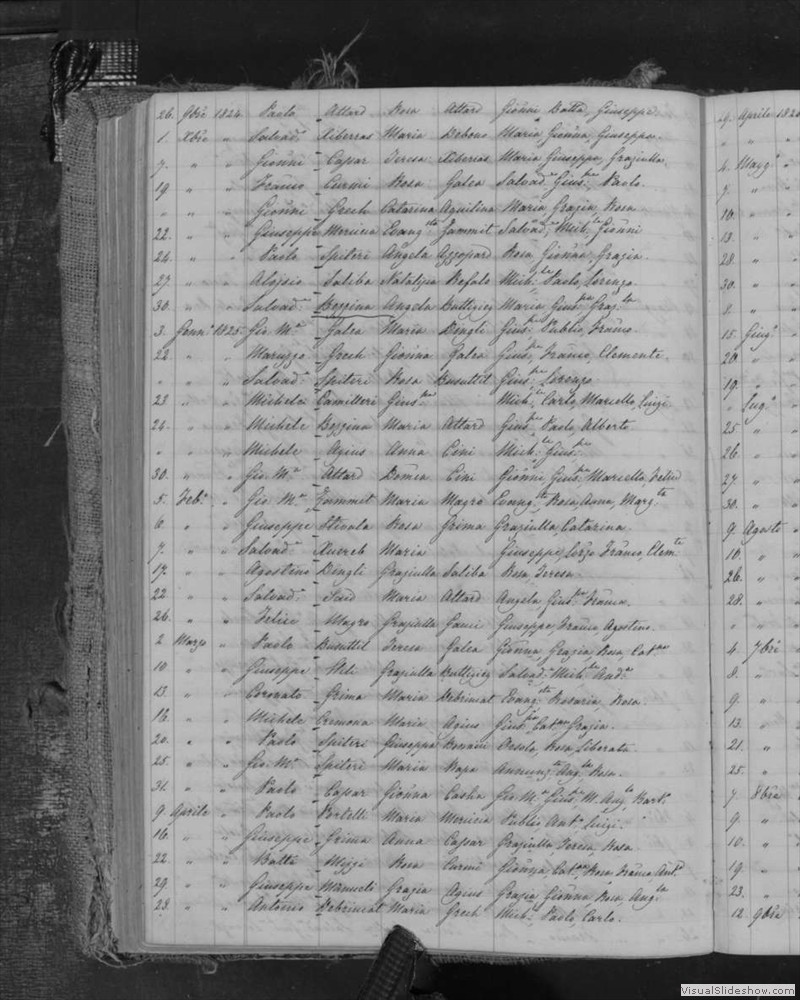 26. 9bre 1824 Paolo Attard Rosa Attard Gionni Batta, Giuseppe.
1. Xbre " Salvad.e Xiberras Maria Debono Maria Gionna, Giuseppa.
7. " " Gionni Caſsar Teresa Xiberras Maria Giuseppa, Graziulla.
19 " " Franco Curmi Rosa Galea Salvad.e Gius.pe Paolo.
" " " Gionni Grech Catarina Aquilina Maria Grazia, Rosa
22. " " Giuseppe Mercieca Evang.ta Zammit Salvad.e Mich.le Gionni
24. " " Paolo Spiteri Angela Azzopard Rosa, Gionni, Grazia.
27. " " Aloisio Saliba Natalizia Refalo Mich.le Paolo, Lorenzo.
30. " " Salvad.e Bezzina Angela Buttigieg Maria Gius.pa Graz.la
3. Genn.o 1825. Gio M.a Galea Maria Dingli Gius.pe Publio, Franco.
22. " " Maruzzo Grech Gionna Galea Gius.pe Franco, Clemente.
" " " Salvad.e Spiteri Rosa Busuttil Gius.pe Lorenzo
23 " " Michele Camilleri Gius.pa Mich.le Carlo, Marcello, Luigi
24. " " Michele Bezzina Maria Attard Gius.pe Paolo, Alberto
" " " Michele Agius Anna Cini Mich.le Gius.pe
30. " " Gio. M.a Attard Domca Cini Gionni, Gius.pe Marcello, Felice
5. Feb.o " Gio M.a Zammit Maria Magro Evang.ta Rosa, Anna, Marg.ta
6. " " Giuseppe Stivala Rosa Grima Graziulla, Catarina.
7. " " Salvad.e Xuereb Maria Giuseppe, Lorzo Franco, Clem.te
17. " " Agostino Dingli Graziulla Saliba Rosa, Teresa.
22 " " Salvad.e Scud Maria Attard Angela Gius.pa Franca.
26. " " Felice Magro Graziulla Gauci Giuseppe, Franco, Agostino.
2 Marzo " Paolo Busuttil Teresa Galea Gionna, Grazia, Rosa, Cat.na
10 " " Giuseppe Meli Graziulla Buttigieg Salvad.e Mich.le And.a
13. " " Coronato Grima Maria Debrincat Evang.sta Rosaria, Rosa.
16. " " Michele Cremona Maria Agius Gius.pa Cat.na Grazia.
20. " " Paolo Spiteri Giuseppa Orsola, Rosa, Liberata.
25. " " Gio. M.a Spiteri Maria Rapa Annunz.ta Ang.la Rosa.
31. " " Paolo Caſsar Gionna Casha Gio M.a Gius.pe M. Ang.lo Bart.o
9. Aprile " Paolo Portelli Maria Mercieca Publio, Ant.o Luigi.
16. " " Giuseppe Grima Anna Caſsar Graziulla, Teresa, Rosa.
22. " " Batta Mizzi Rosa Curmi Gionna, Cat.na Rosa, Franco, Ant.o
29. " " Giuseppe Grazia Agius Grazia, Gionna, Rosa, Ang.la
28. " " Antonio Debrincat Maria Grech Mich.le Paolo, Carlo.
29. Aprile 182
" "
4. Magg.o
7. "
10. "
13. "
28. "
30. "
15. Giug.o
20. "
19. "
" Lug.o
25. "
26. "
27. "
30. "
9. Agosto
10. "
26. "
28. "
" "
4. 7bre
8. "
9. "
13. "
21. "
25. "
7. 8bre
9. "
10. "
19. "
23. "
12. 9bre
VisualSlideshow.com